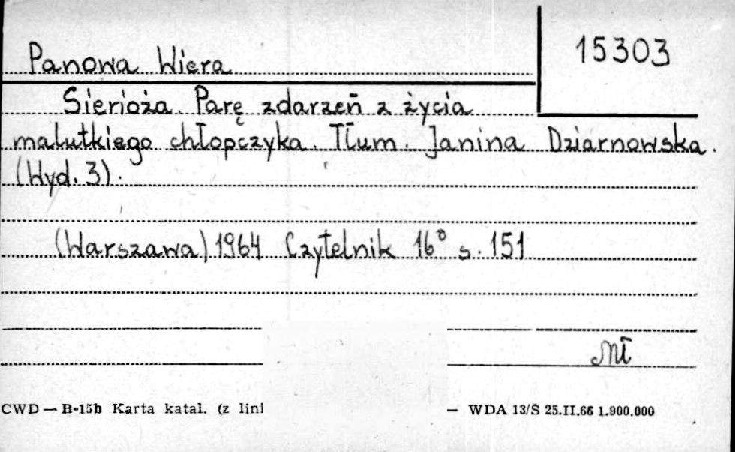 15303
Panowa Wiera
Sierioża. Parę zdarzeń z życia
malutkiego chłopczyka. Tłum. Janina Dziarnowska.
(Wyd. 3).
(Warszawa) 1964 Czytelnik 16° s. 151
CWD — B-15b Karta katal. (z lini
— WDA 13/S 25.II.66 1.900.000